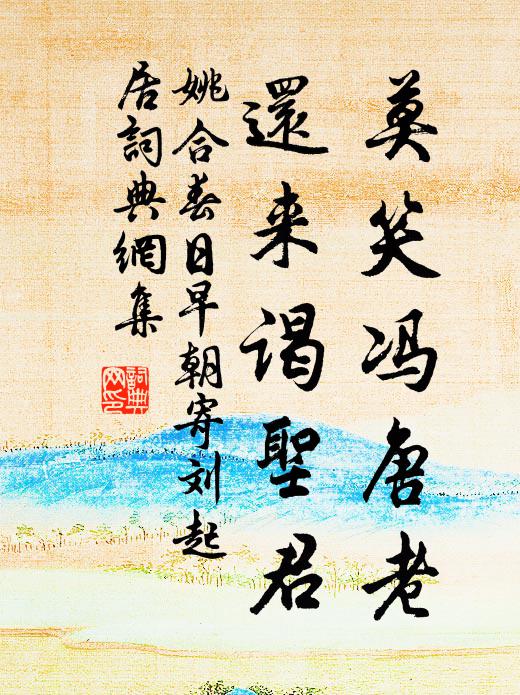 莫笑冯唐老
還来谒聖君
姚合春日早朝寄刘起
居詞典網集
詞典网印